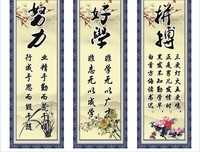 努力
业精于勤荒于嬉
行成于思而毁于随
好學
非學无以广才
非志无以成學
拼搏
三更灯火五更鸡
正是男儿读书时
黑发不知勤学早
白首方悔读书迟